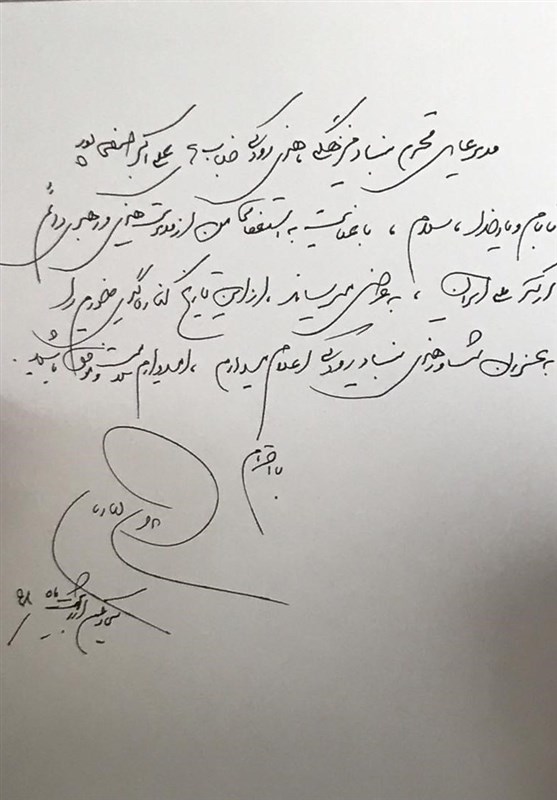 مدیر عامل محترم بنیاد فرهنگی هنری رودکی جناب آقای علی اکبر صفی پور
با نام و یاد خدا، سلام، با عنایت به استعفای من از مدیریت هنری و رهبری دائم
ارکستر ملی ایران، به عرض می رساند از این تاریخ کناره گیری خود را
به عنوان مشاور هنری بنیاد رودکی اعلام میدارم، امیدوارم سلامت و موفق باشید.
با احترام